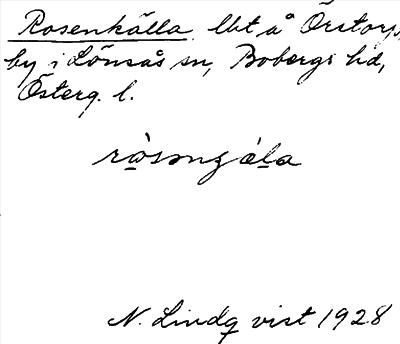 Rosenkälla. lht å Örstorp,
by i Lönsås sn, Bobergs hd,
Österg. l.
N. Lindq vist 1928